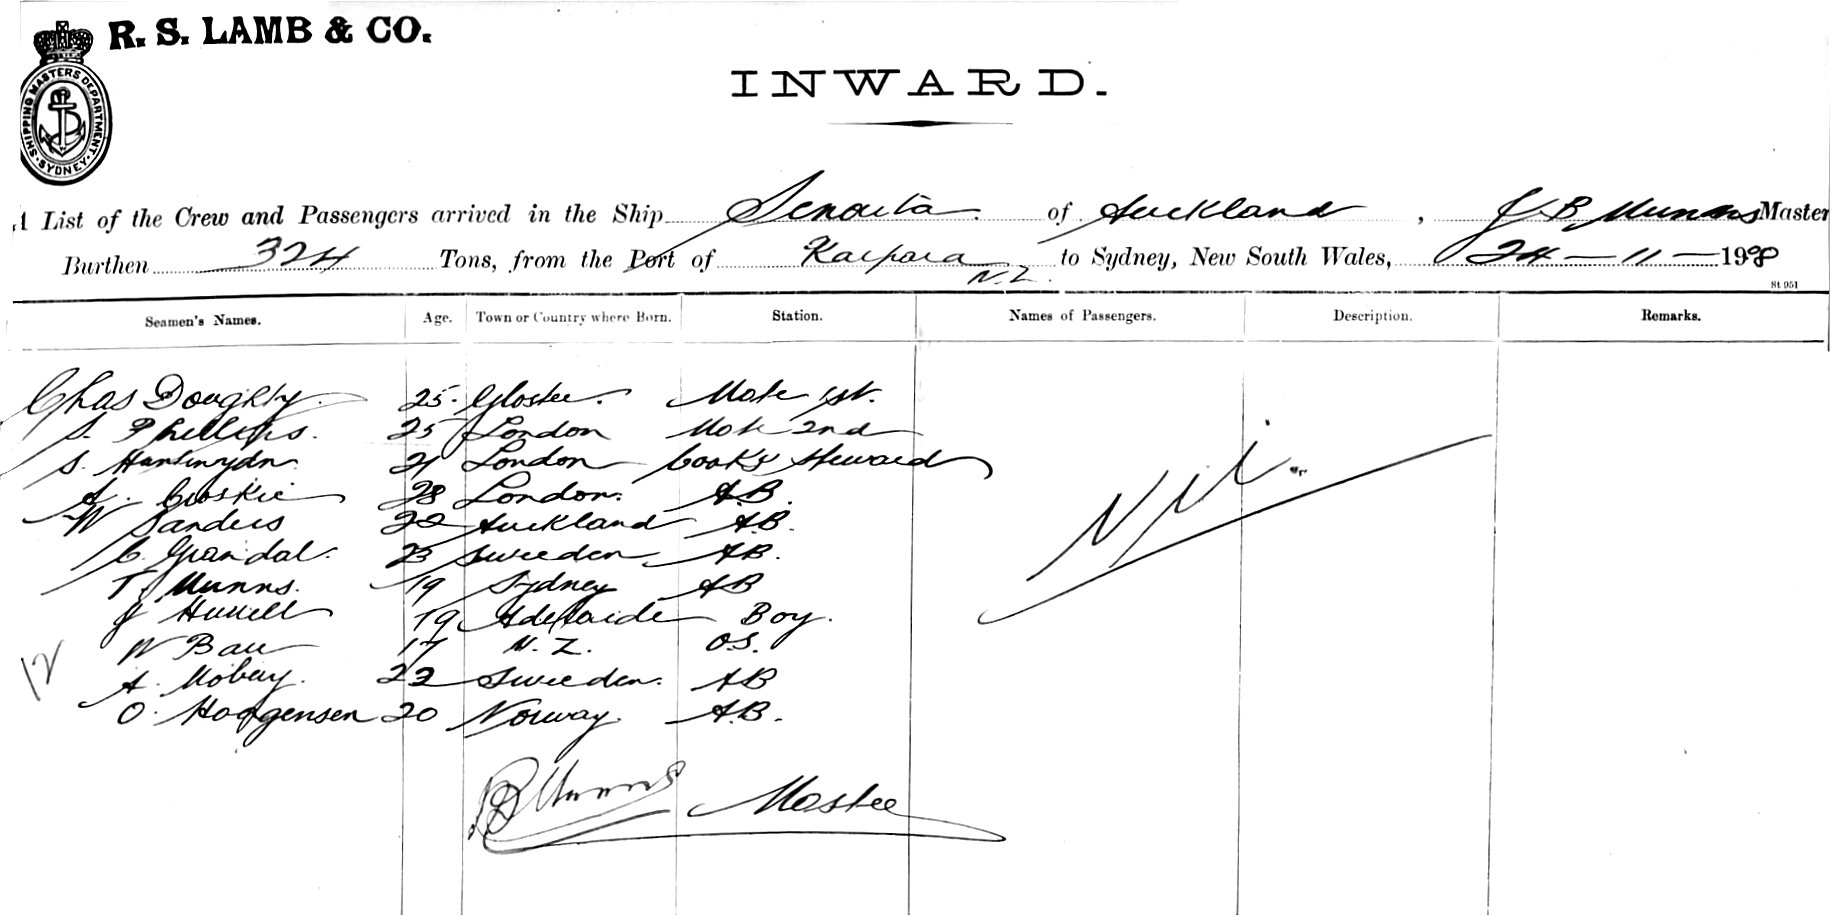 R. S. LAMB & CO.
SHIPPING MASTERS DEPARTMENT. SYDNEY.
INWARD.
A List of the Crew and Passengers arrived in the Ship Senorita of Auckland, J B Munns Master
Burthen 324 Tons, from the Port of Kaipara N.Z. to Sydney, New South Wales, 24-11-19
St 951
Seamen's Names. Age. Town or Country where Born. Station. Names of Passengers. Description. Remarks.
Chas Doughty 25 Gloster. Mate 1st.
S. Phillips. 25 London Mate 2nd
S. 21 London Cook & Steward
A. 28 London. A.B.
W Sanders 22 Auckland A.B.
C. Grandal. 23 Sweeden A.B.
T. Munns. 19 Sydney AB
J 19 Adelaide Boy.
W 17 N.Z. O.S.
A. 22 Sweeden. AB
O. 20 Norway. A.B.
Nil.
12
JB Munns Master